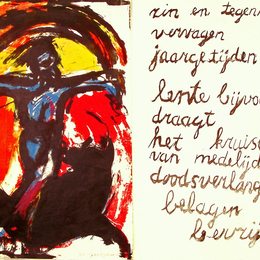 zin en tegen
vervagen
jaargetijden
lente bijvo
draagt
het kruis
van medelij
doodsverlang
belagen
bevrij